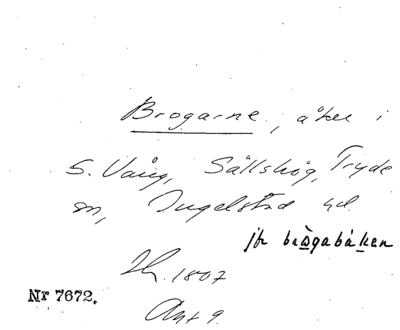 Brogarne, åker i
S. Vång, Sällshög, Tryde
sn, Ingelstad hd.
jfr brògabáken
Sk. 1807
Nr 7672.
Akt 9